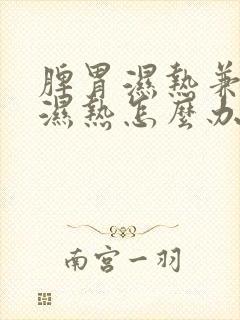 脾胃濕熱兼
濕熱怎麼办
南宮一羽